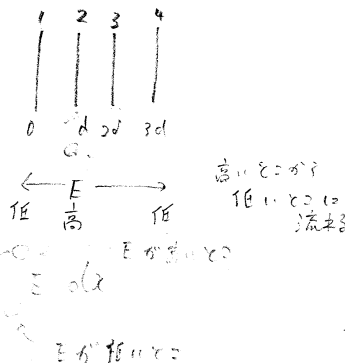 1 2 3 4
0 d 2d 3d
Q
E
低 高 低
高いとこから
低いとこに
流れる
Eが高いとこ
E dx
Eが低いとこ